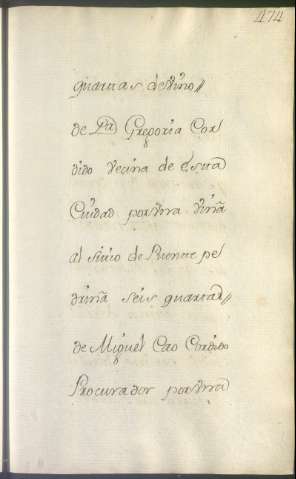 474
quartas de Vino//
de Da Gregoria Cor
dido Vecina de Esta
Ciudad por Una Viña
al sitio de Puente pe
driña seis quartas//
de Miguel Cao Cordido
Procurador por Una